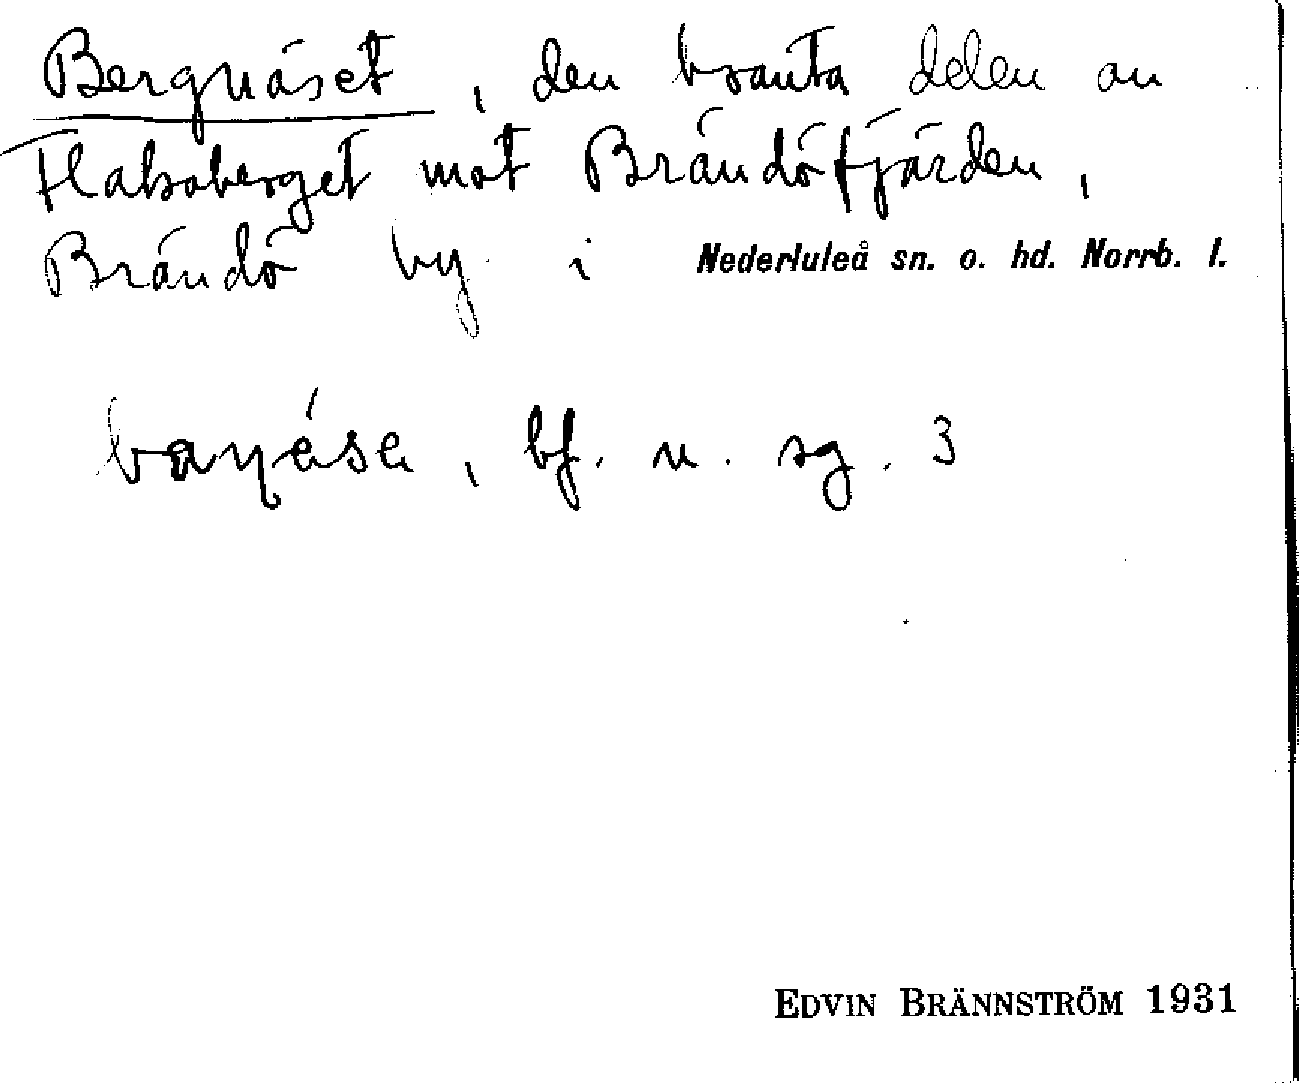 Bergnäset, den branta delen av
Flaksaberget mot Brändöfjärden,
Brändö by i Nederluleå sn. o. hd. Norrb. l.
bf. n. sg. 3
EDVIN BRÄNNSTRÖM 1931